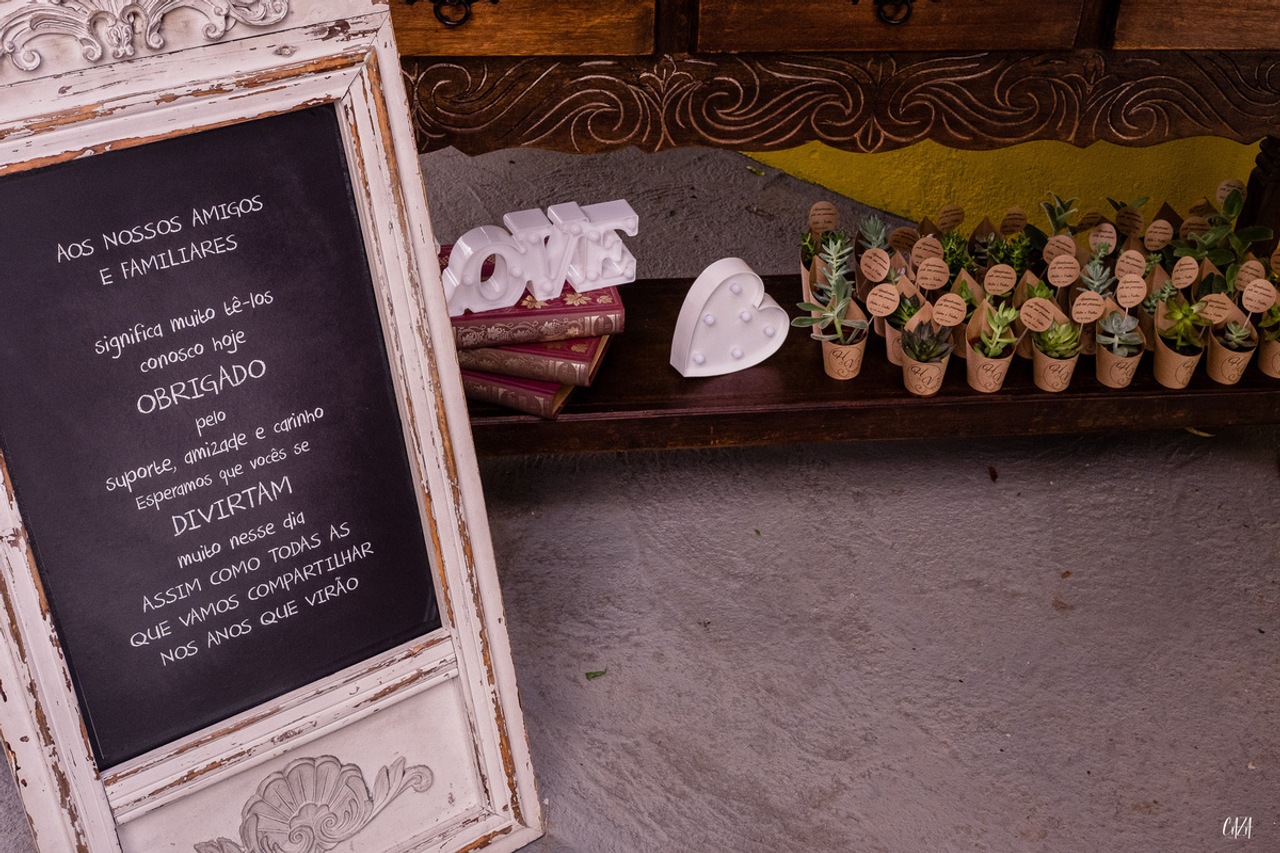 AOS NOSSOS AMIGOS
E FAMILIARES
significa muito tê-los
conosco hoje
OBRIGADO
pelo
suporte, amizade e carinho
Esperamos que vocês se
DIVIRTAM
muito nesse dia
ASSIM COMO TODAS AS
QUE VAMOS COMPARTILHAR
NOS ANOS QUE VIRÃO
LOVE